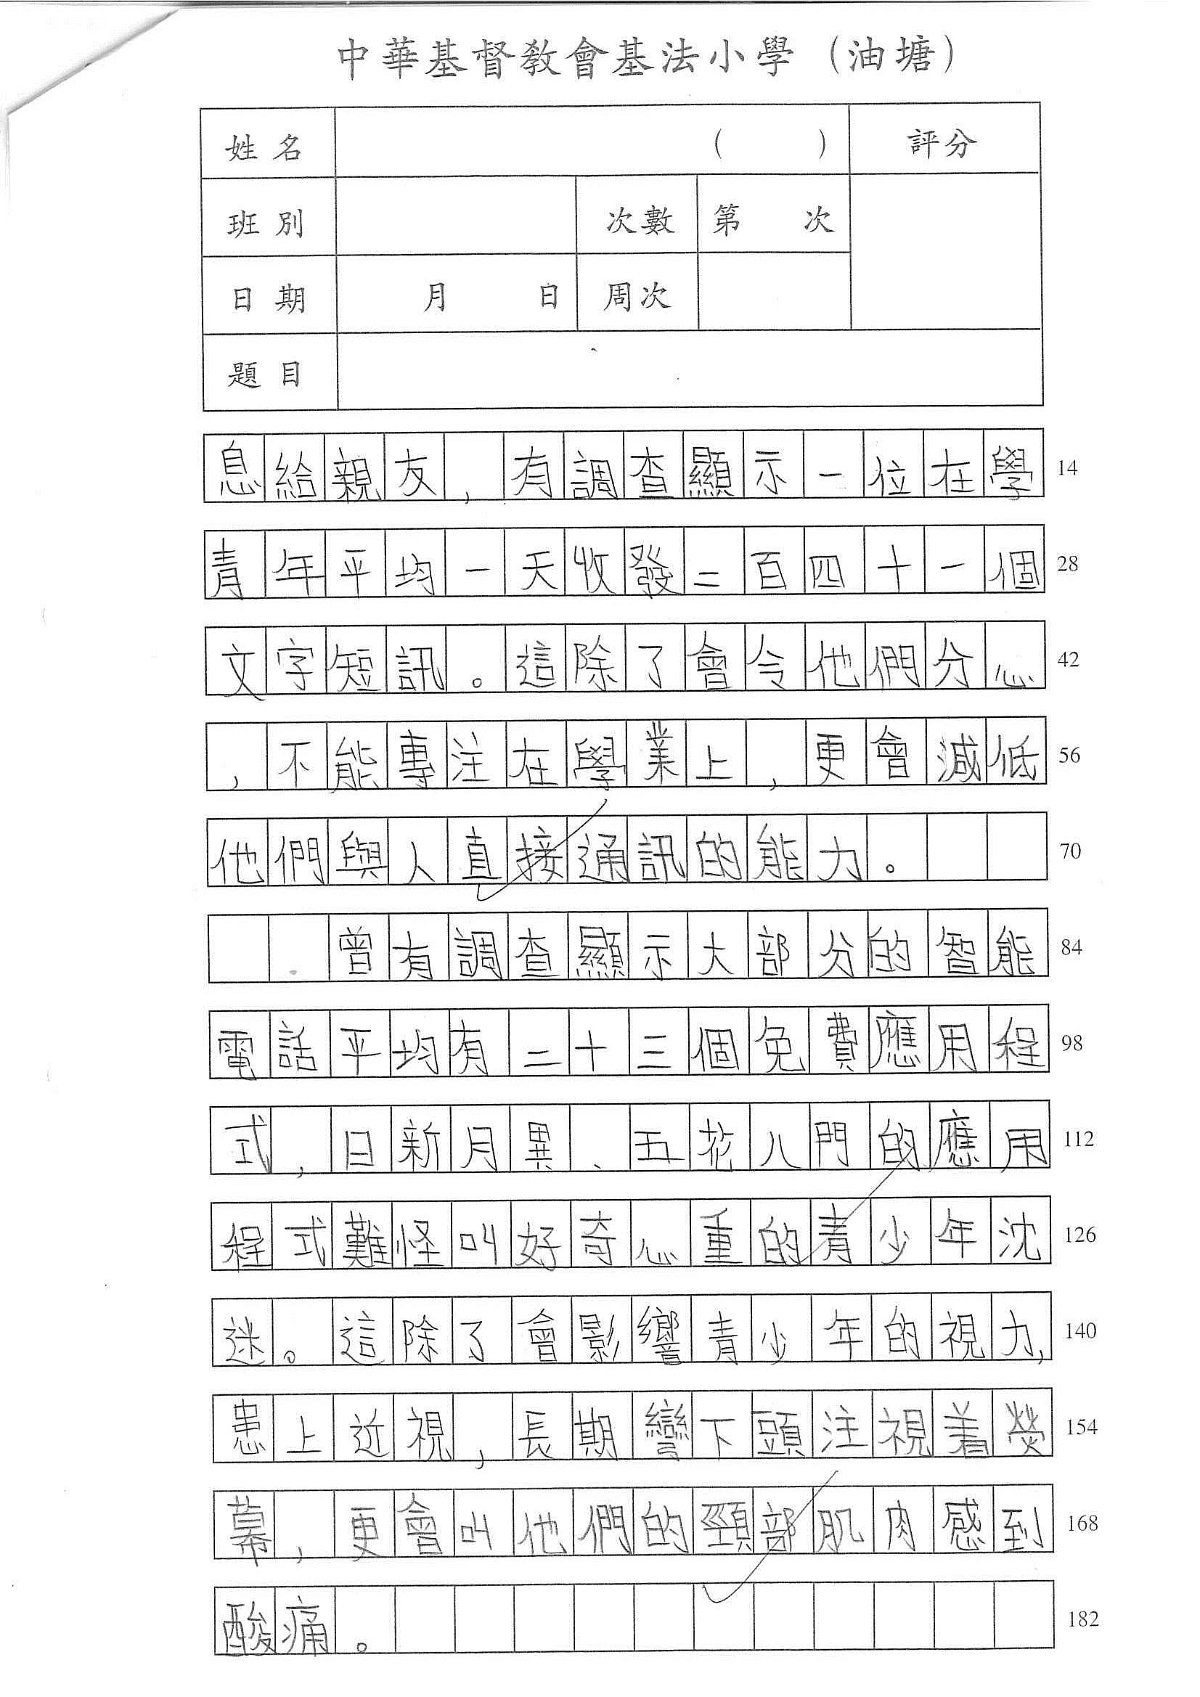 中華基督教會基法小學（油塘）
姓名 （ ） 評分
班別 次數 第 次
日期 月 日 周次
題目
息給親友，有調查顯示一位在學 14
青年平均一天收發二百四十一個 28
文字短訊。這除了會令他們分心 42
，不能專注在學業上，更會減低 56
他們與人直接通訊的能力。 70
曾有調查顯示大部分的智能 84
電話平均有二十三個免費應用程 98
式，日新月異、五花八門的應用 112
程式難怪叫好奇心重的青少年沈 126
迷。這除了會影響青少年的視力， 140
患上近視，長期彎下頭注視着熒 154
幕，更會叫他們的頸部肌肉感到 168
酸痛。 182